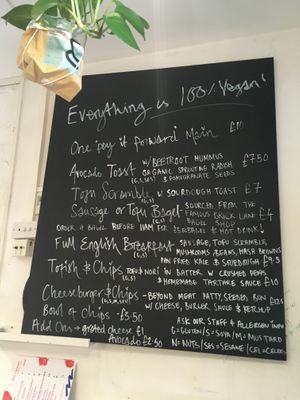 Everything is 100% Vegan!
One 'pay it forward' Main £10
Avocado Toast w/ BEETROOT HUMMUS
ORGANIC SPROUTING RADISH £7.50
& POMEGRANATE SEEDS
Tofu Scramble w/ SOURDOUGH TOAST £7
Sausage or Tofu Bagel SOURCED FROM THE
FAMOUS BRICK LANE £4
BAGEL SHOP
ORDER A BAGEL BEFORE 11AM FOR & HOT DRINK!
Full English Breakfast SAUSAGE, TOFU SCRAMBLE,
MUSHROOMS, BEANS, HASH BROWNS
PAN FRIED KALE & SOURDOUGH £9.5
Tofish & Chips TOFU & NORI IN BATTER W CRUSHED PEAS
& HOMEMADE TARTARE SAUCE £10
Cheeseburger & Chips - BEYOND MEAT PATTY, SEEDED BUN
W/ CHEESE, BURGER SAUCE & KETCHUP
Bowl of Chips - £3.50
ASK OUR STAFF 4 ALLERGEN INFO
Add Ons → grated cheese £1
G=GLUTEN/S=SOYA/M=MUSTARD
Avocado £2.50
N=NUTS/SES=SESAME/CEL=CELERY